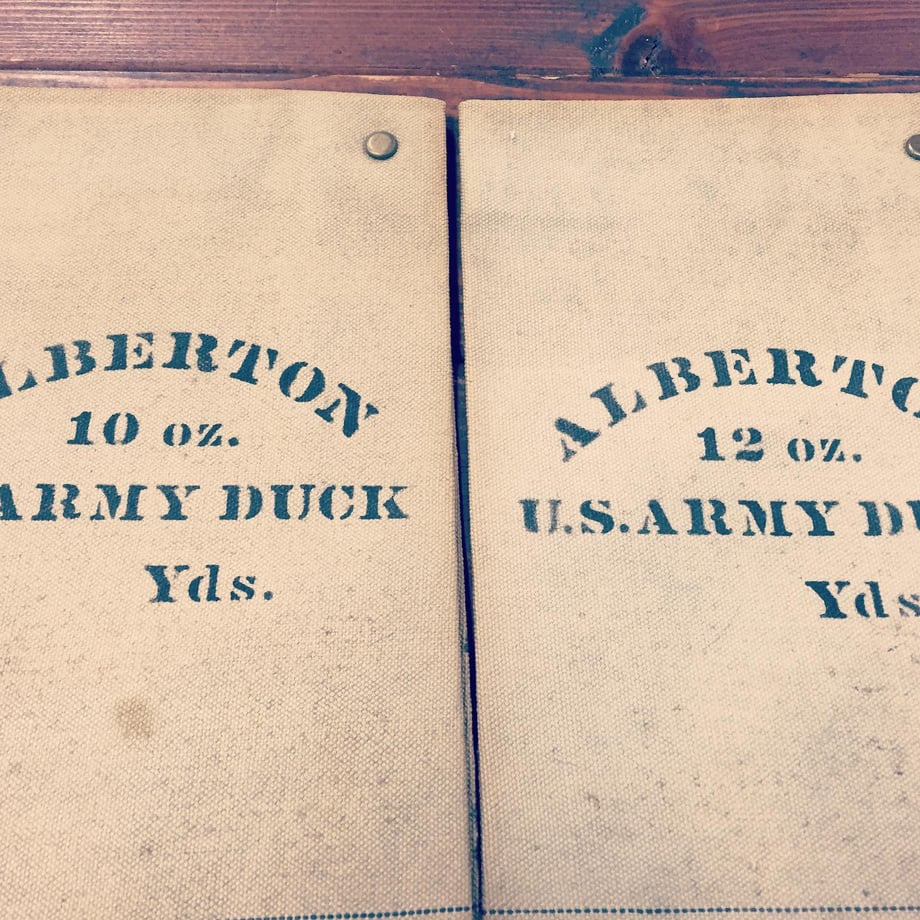 LBERTON
10 oz.
ARMY DUCK
Yds.
ALBERTO
12 oz.
U.S.ARMY DU
Yds